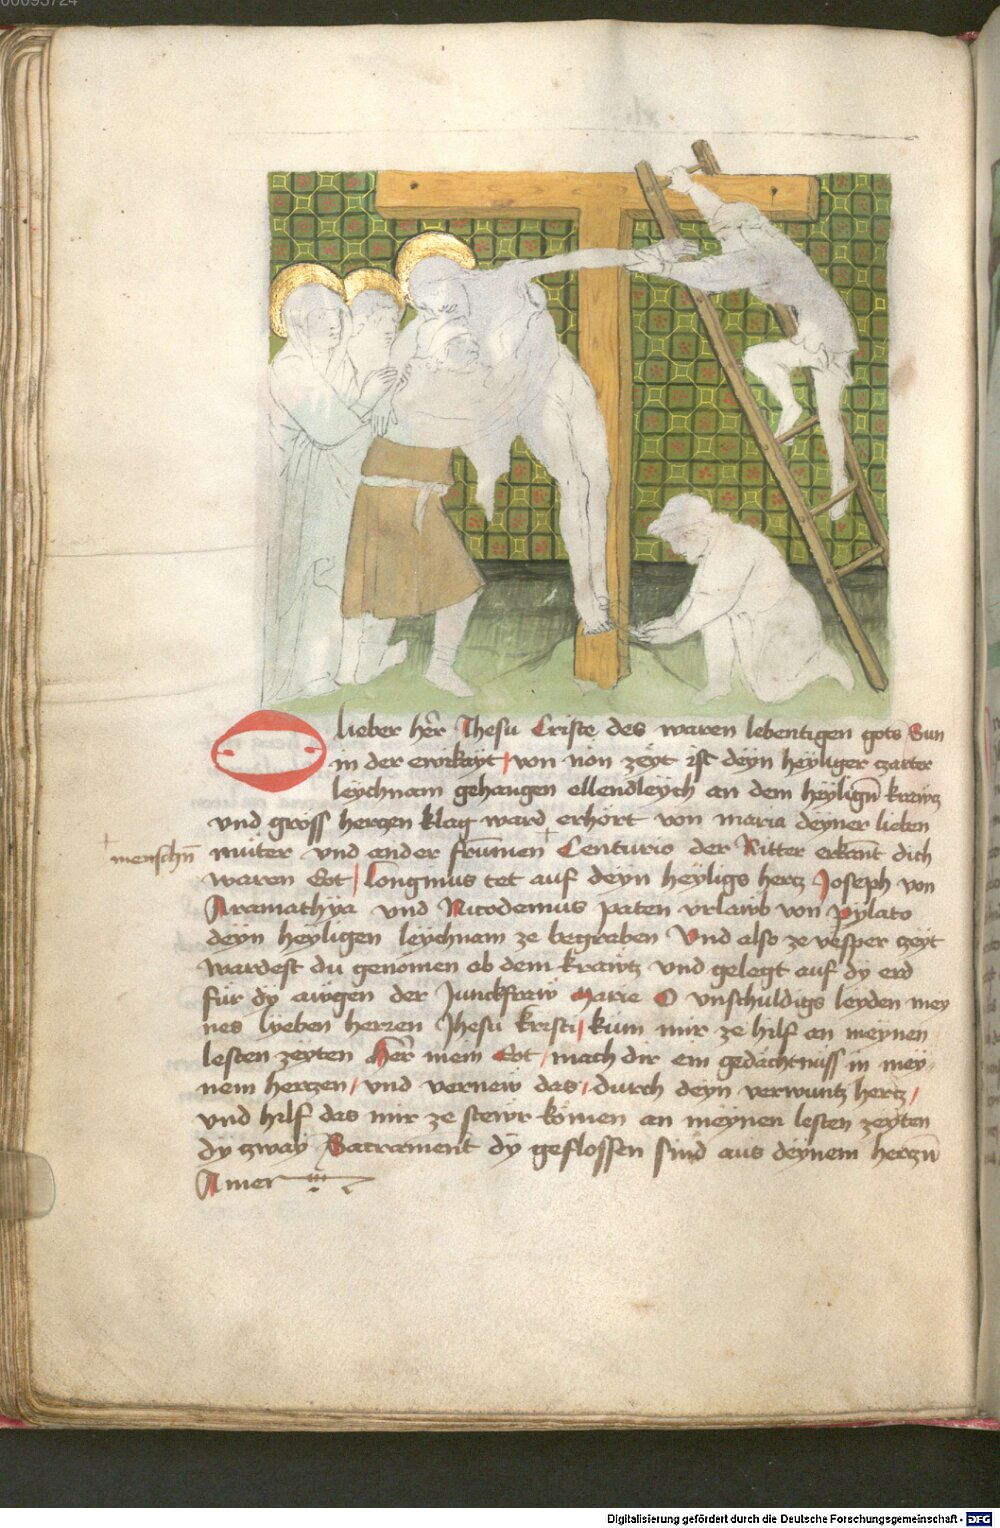 O lieber her̄ Jhesu Criste des waren lebentigen gots Sun
in der ewikayt / von non zeyt ist deyn heyliger zarter
leychnam gehangen ellendleych an dem heylign̄ krewtz
vnd gross hertzen klag ward erhört von maria deyner lieben
+ menschn̄
muter vnd ander frumen + Centurio der Ritter erkant dich
waren Got / Longinus tet auf deyn heyligs hertz Joseph von
Aramathya vnd Nicodemus paten vrlawb von pylato
deyn heyligen leychnam ze begraben Vnd also ze vesper zeyt
wardest du genomen ab dem krawtz vnd gelegt auf dy erd
für dy awgen der Junckfraw Marie O vnschuldigs leyden mey
nes lyeben herren Jhesu kristi / kum mir ze hilf an meynen
lesten zeyten Her̄ mein Got / mach dir ein gedächtnuss in mey
nem hertzen / vnd vernew das / durch deyn verwuntz hertz /
vnd hilf das mir ze stewr komen an meynen lesten zeyten
dy zway Sacrament dy geflossen sind aus deynem hertzn̄
Amen
Digitalisierung gefördert durch die Deutsche Forschungsgemeinschaft - DFG